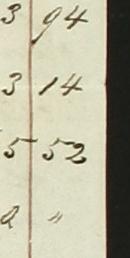 3 94
3 14
5 52
2 "